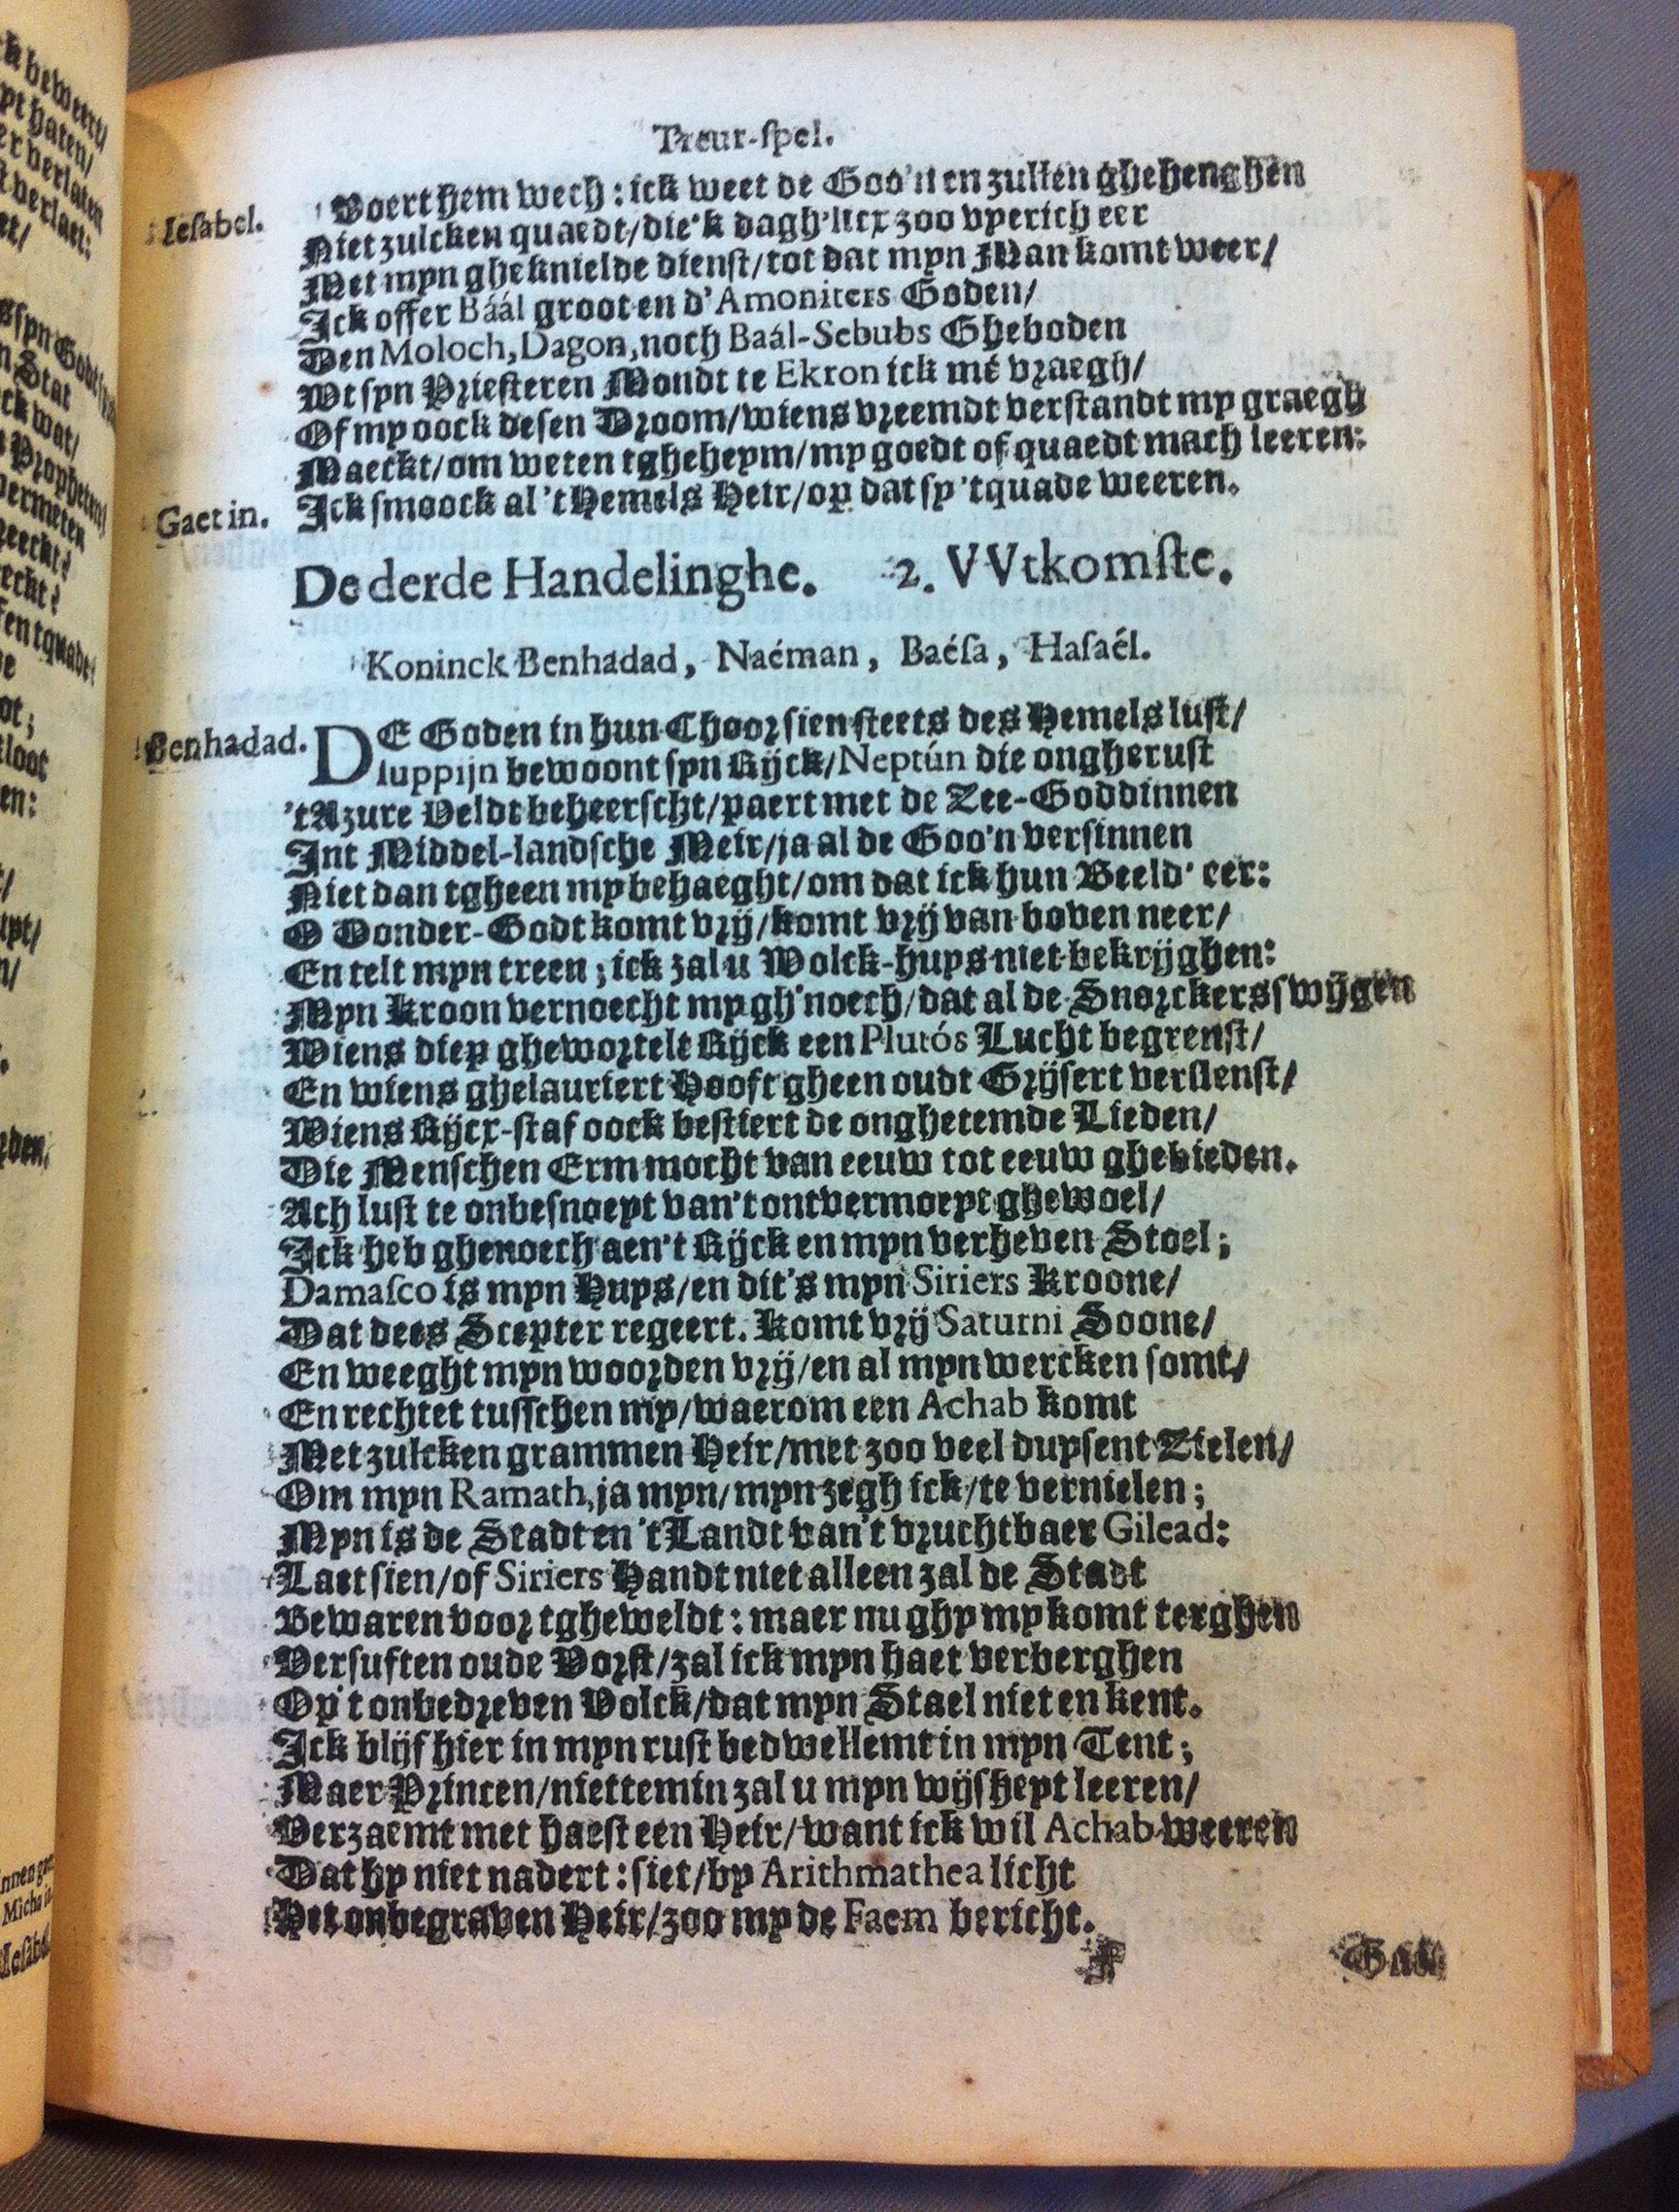 Treur-ſpel.
Ieſabel. Voert hem wech: ick weet de Goo'n en zullen ghehenghen
Niet zulcken quaedt/die'k dagh'licx zoo vyerich eer
Met myn gheknielde dienſt/tot dat myn Man komt weer/
Ick offer Báál groot en d'Amoniters Goden/
Den Moloch, Dagon, noch Baál-Sebubs Gheboden
Wt ſyn Prieſteren Mondt te Ekron ick mé vraegh/
Of my oock deſen Droom/wiens vreemdt verſtandt my graegh
Maeckt/om weten tgheheym/my goedt of quaedt mach leeren:
Gaet in. Ick ſmoock al 't Hemels Heir/op dat ſy 'tquade weeren.
De derde Handelinghe. 2. VVtkomſte.
Koninck Benhadad, Naéman, Baéſa, Haſaél.
Benhadad. DE Goden in hun Choor ſien ſteets des Hemels luſt/
Iuppijn bewoont ſyn Rijck/Neptún die ongheruſt
'tAzure Veldt beheerſcht/paert met de Zee-Goddinnen
Int Middel-landſche Meir/ja al de Goo'n verſinnen
Niet dan tgheen my behaeght/om dat ick hun Beeld' eer:
O Donder-Godt komt vrij/komt vrij van boven neer/
En telt myn treen; ick zal u Wolck-huys niet bekrijghen:
Myn Kroon vernoecht my gh'noech/dat al de Snorckers ſwijgen
Wiens diep ghewortelt Rijck een Plutós Lucht begrenſt/
En wiens ghelauriert Hooft gheen oudt Grijſert verſlenſt/
Wiens Rijcx-ſtaf oock beſtiert de onghetemde Lieden/
Die Menſchen Erm mocht van eeuw tot eeuw ghebieden.
Ach luſt te onbeſnoeyt van't ontvermoeyt ghewoel/
Ick heb ghenoech aen't Rijck en myn verheven Stoel;
Damaſco is myn Huys/en dit's myn Siriers Kroone/
Dat dees Scepter regeert. Komt vrij Saturni Soone/
En weeght myn woorden vrij/en al myn wercken ſomt/
En rechtet tuſſchen my/waerom een Achab komt
Met zulcken grammen Heir/met zoo veel duyſent Zielen/
Om myn Ramath, ja myn/myn zegh ick/te vernielen;
Myn is de Stadt en 't Landt van't vruchtbaer Gilead:
Laet ſien/of Siriers Handt niet alleen zal de Stadt
Bewaren voor tgheweldt: maer nu ghy my komt terghen
Verſuften oude Vorſt/zal ick myn haet verberghen
Op't onbedreven Volck/dat myn Stael niet en kent.
Ick blijf hier in myn ruſt bedwellemt in myn Tent;
Maer Princen/niettemin zal u myn wijſheyt leeren/
Verzaemt met haeſt een Heir/want ick wil Achab weeren
Dat hy niet nadert: ſiet/by Arithmathea licht
Het onbegraven Heir/zoo my de Faem bericht.
F